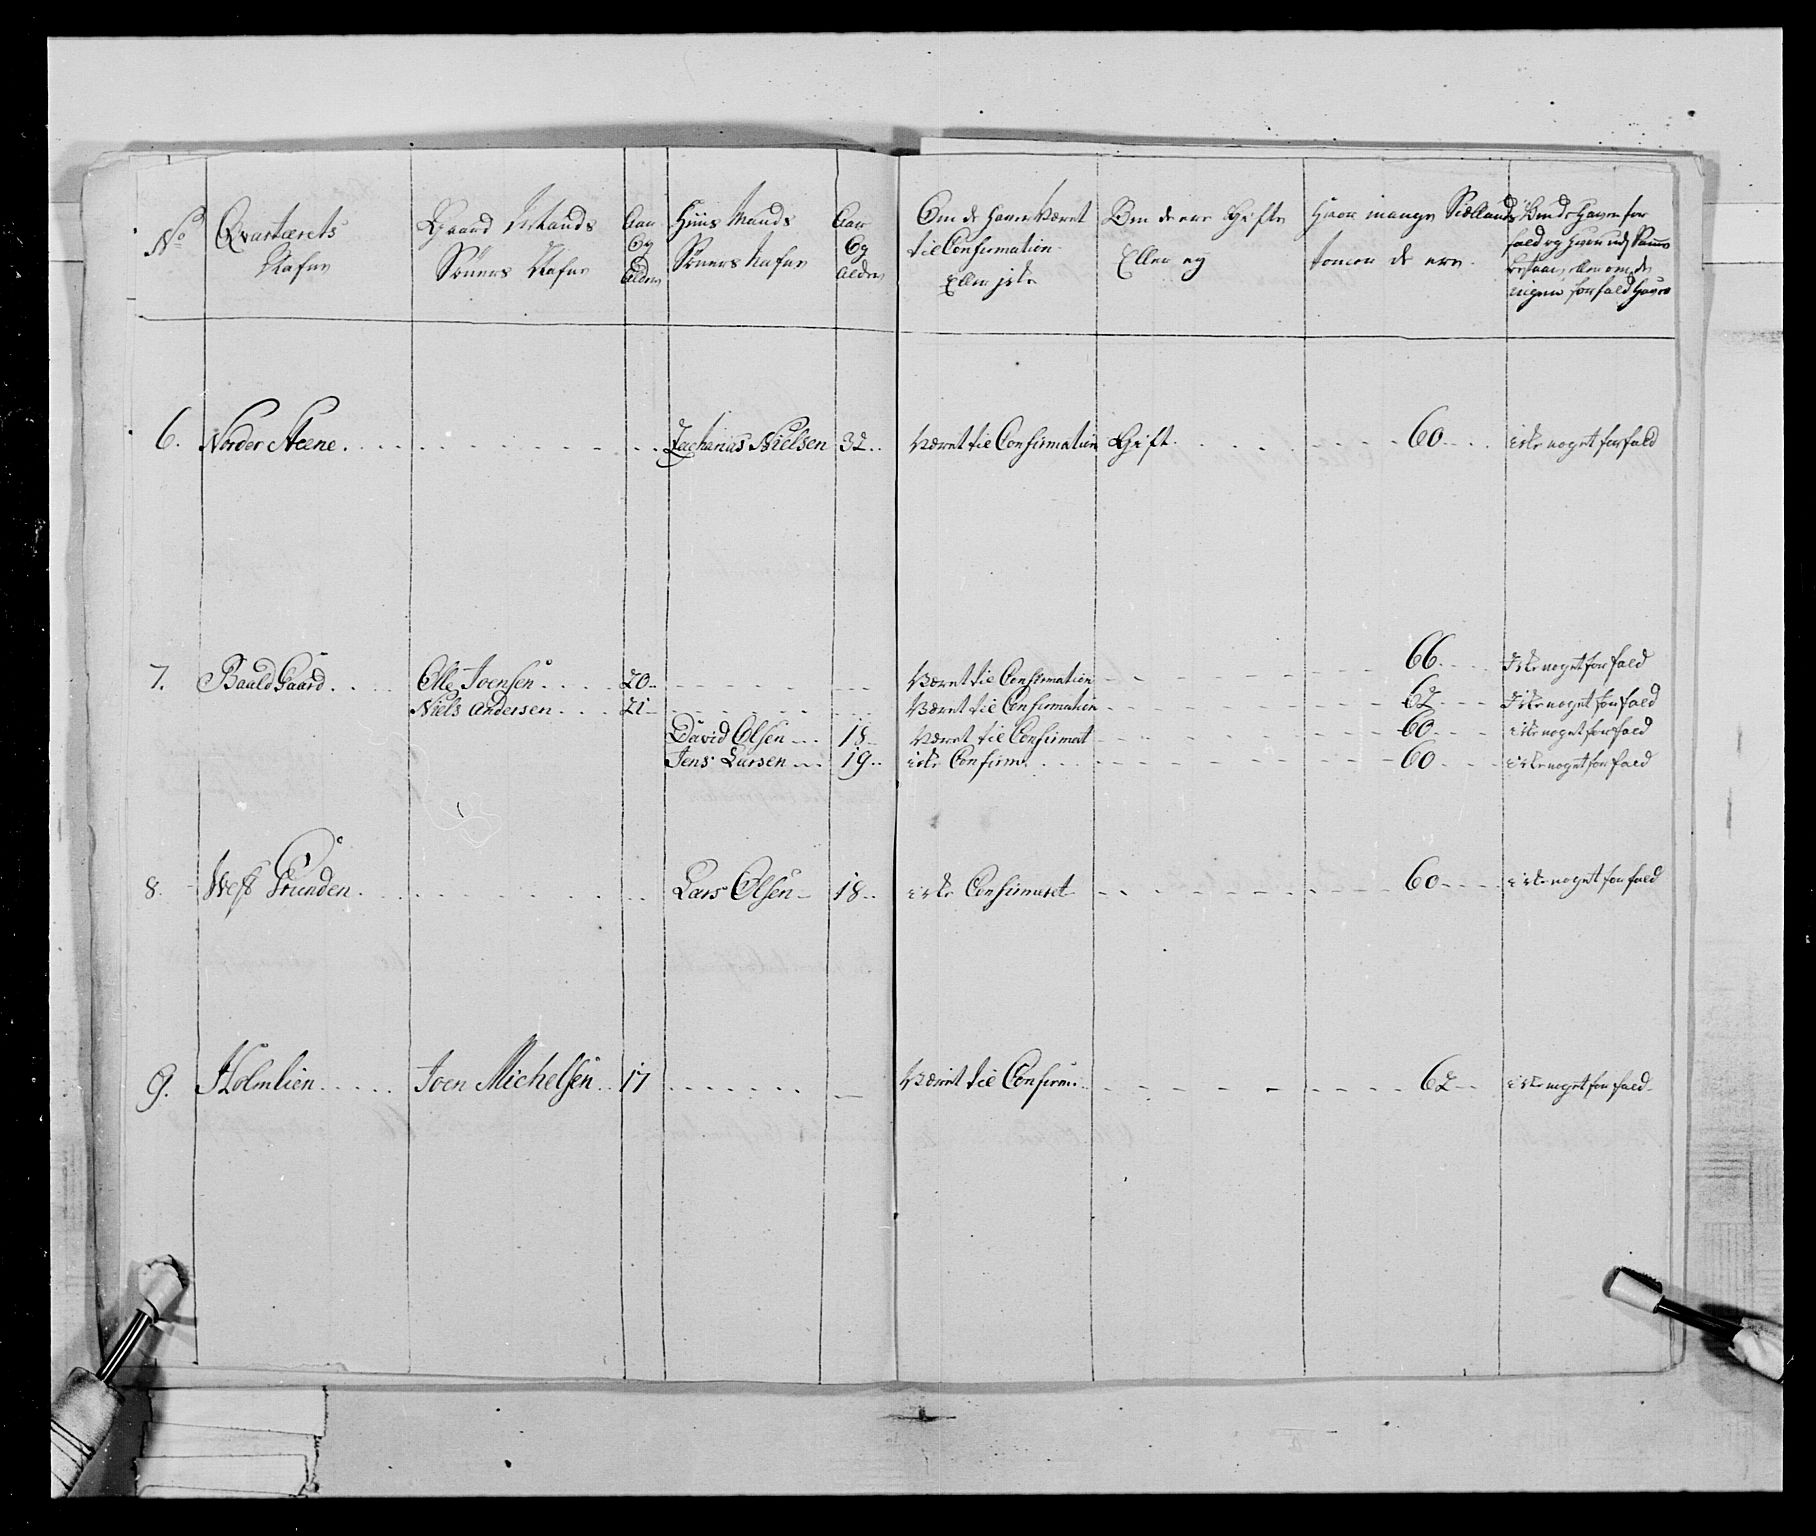 No
Qvartærets
Nafne
Gaard Mands
Söners Nafne
Aar
Og
Alder
Huus Mands
Söners Nafne
Aar
Og
Alder
Om de haver Været
til Confirmation
Eller icke
Om de ere Gifte
Eller ey
Hvor mange Siællands
tommer de ere.
Om de haver for
fald og hvor udj
bestaar, eller om de
ingen forfald haver
6. Norder Steene. Zacharias Nielsen 32.. Været til Confirmation Gift. 60 icke noget forfald
7. Baald Gaard. Olle Joensen. 20.. Været til Confirmation 66. Icke noget forfald
Niels Andersen. 21 Været til Confirmation 62 Icke noget forfald
David Olsen 18.. Været til Confirmat 60 icke noget forfald
Jens Larsen 19.. icke Confirm. 60 icke noget forfald
8. West Grunden. Lars Olsen 18.. icke Confirmeret 60 icke noget forfald
9. Holmlien. Joen Michelsen 17 Været til Confirm. 62 icke noget forfald